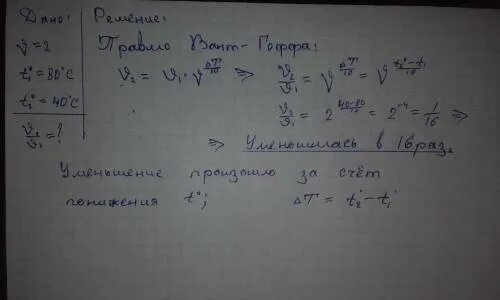 Дано:
γ = 2
t₁° = 80°C
t₂° = 40°C
υ₂/υ₁ = ?
Решение:
Правило Вант-Гоффа:
υ₂ = υ₁ · γ^(ΔT/10) => υ₂/υ₁ = γ^(ΔT/10) = γ^((t₂°-t₁°)/10)
υ₂/υ₁ = 2^((40-80)/10) = 2⁻⁴ = 1/16 =>
=> Уменьшилась в 16 раз.
Уменьшение произошло за счёт
понижения t°; ΔT = t₂° - t₁°